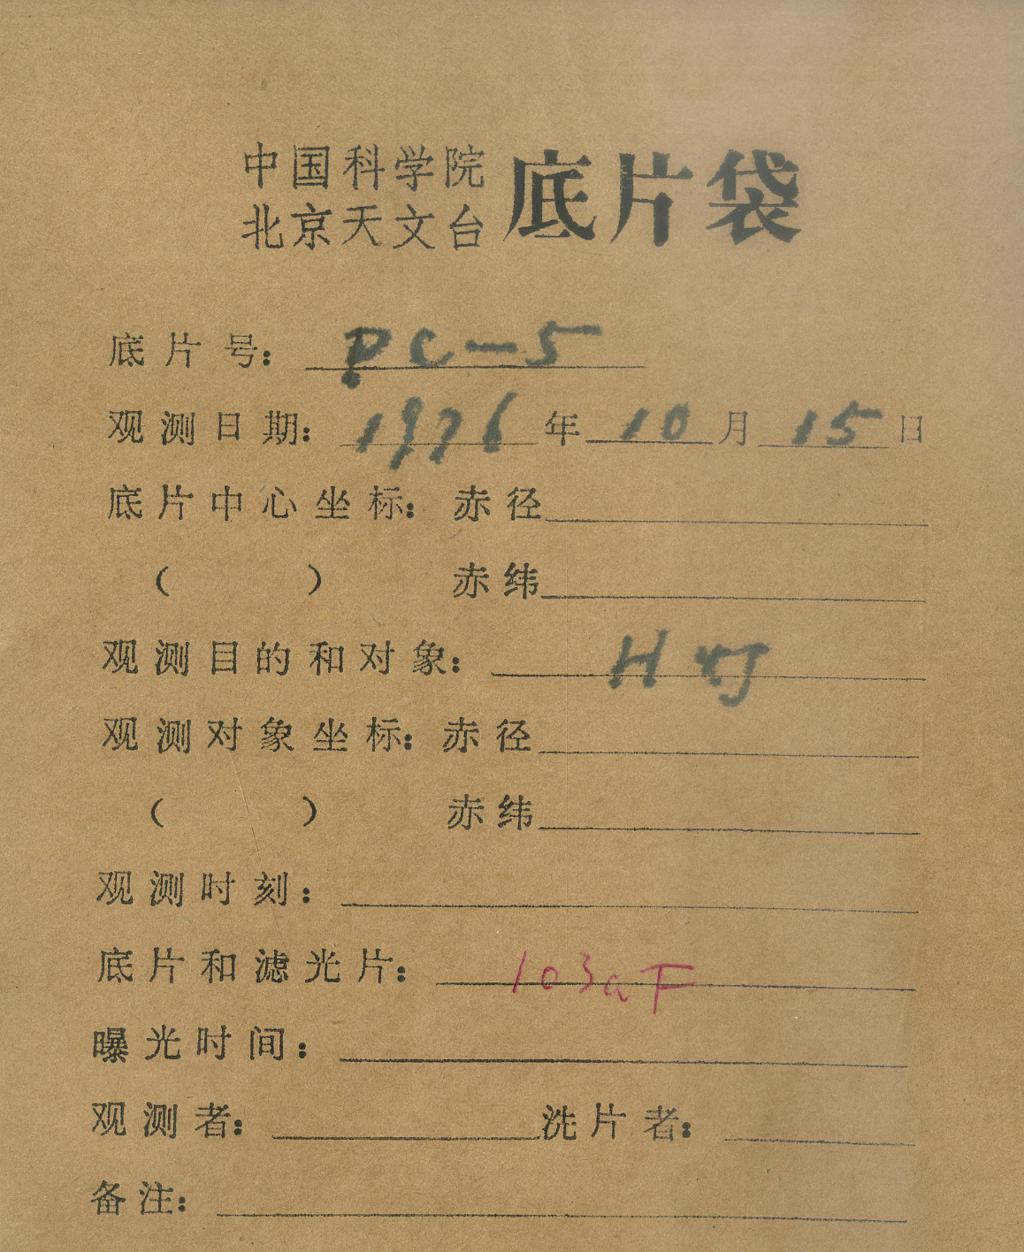 中国科学院
北京天文台
底片袋
底片号: PC-5
观测日期: 1976年10月15日
底片中心坐标: 赤径
( ) 赤纬
观测目的和对象: H灯
观测对象坐标: 赤径
( ) 赤纬
观测时刻:
底片和滤光片: 103aF
曝光时间:
观测者: 洗片者:
备注: